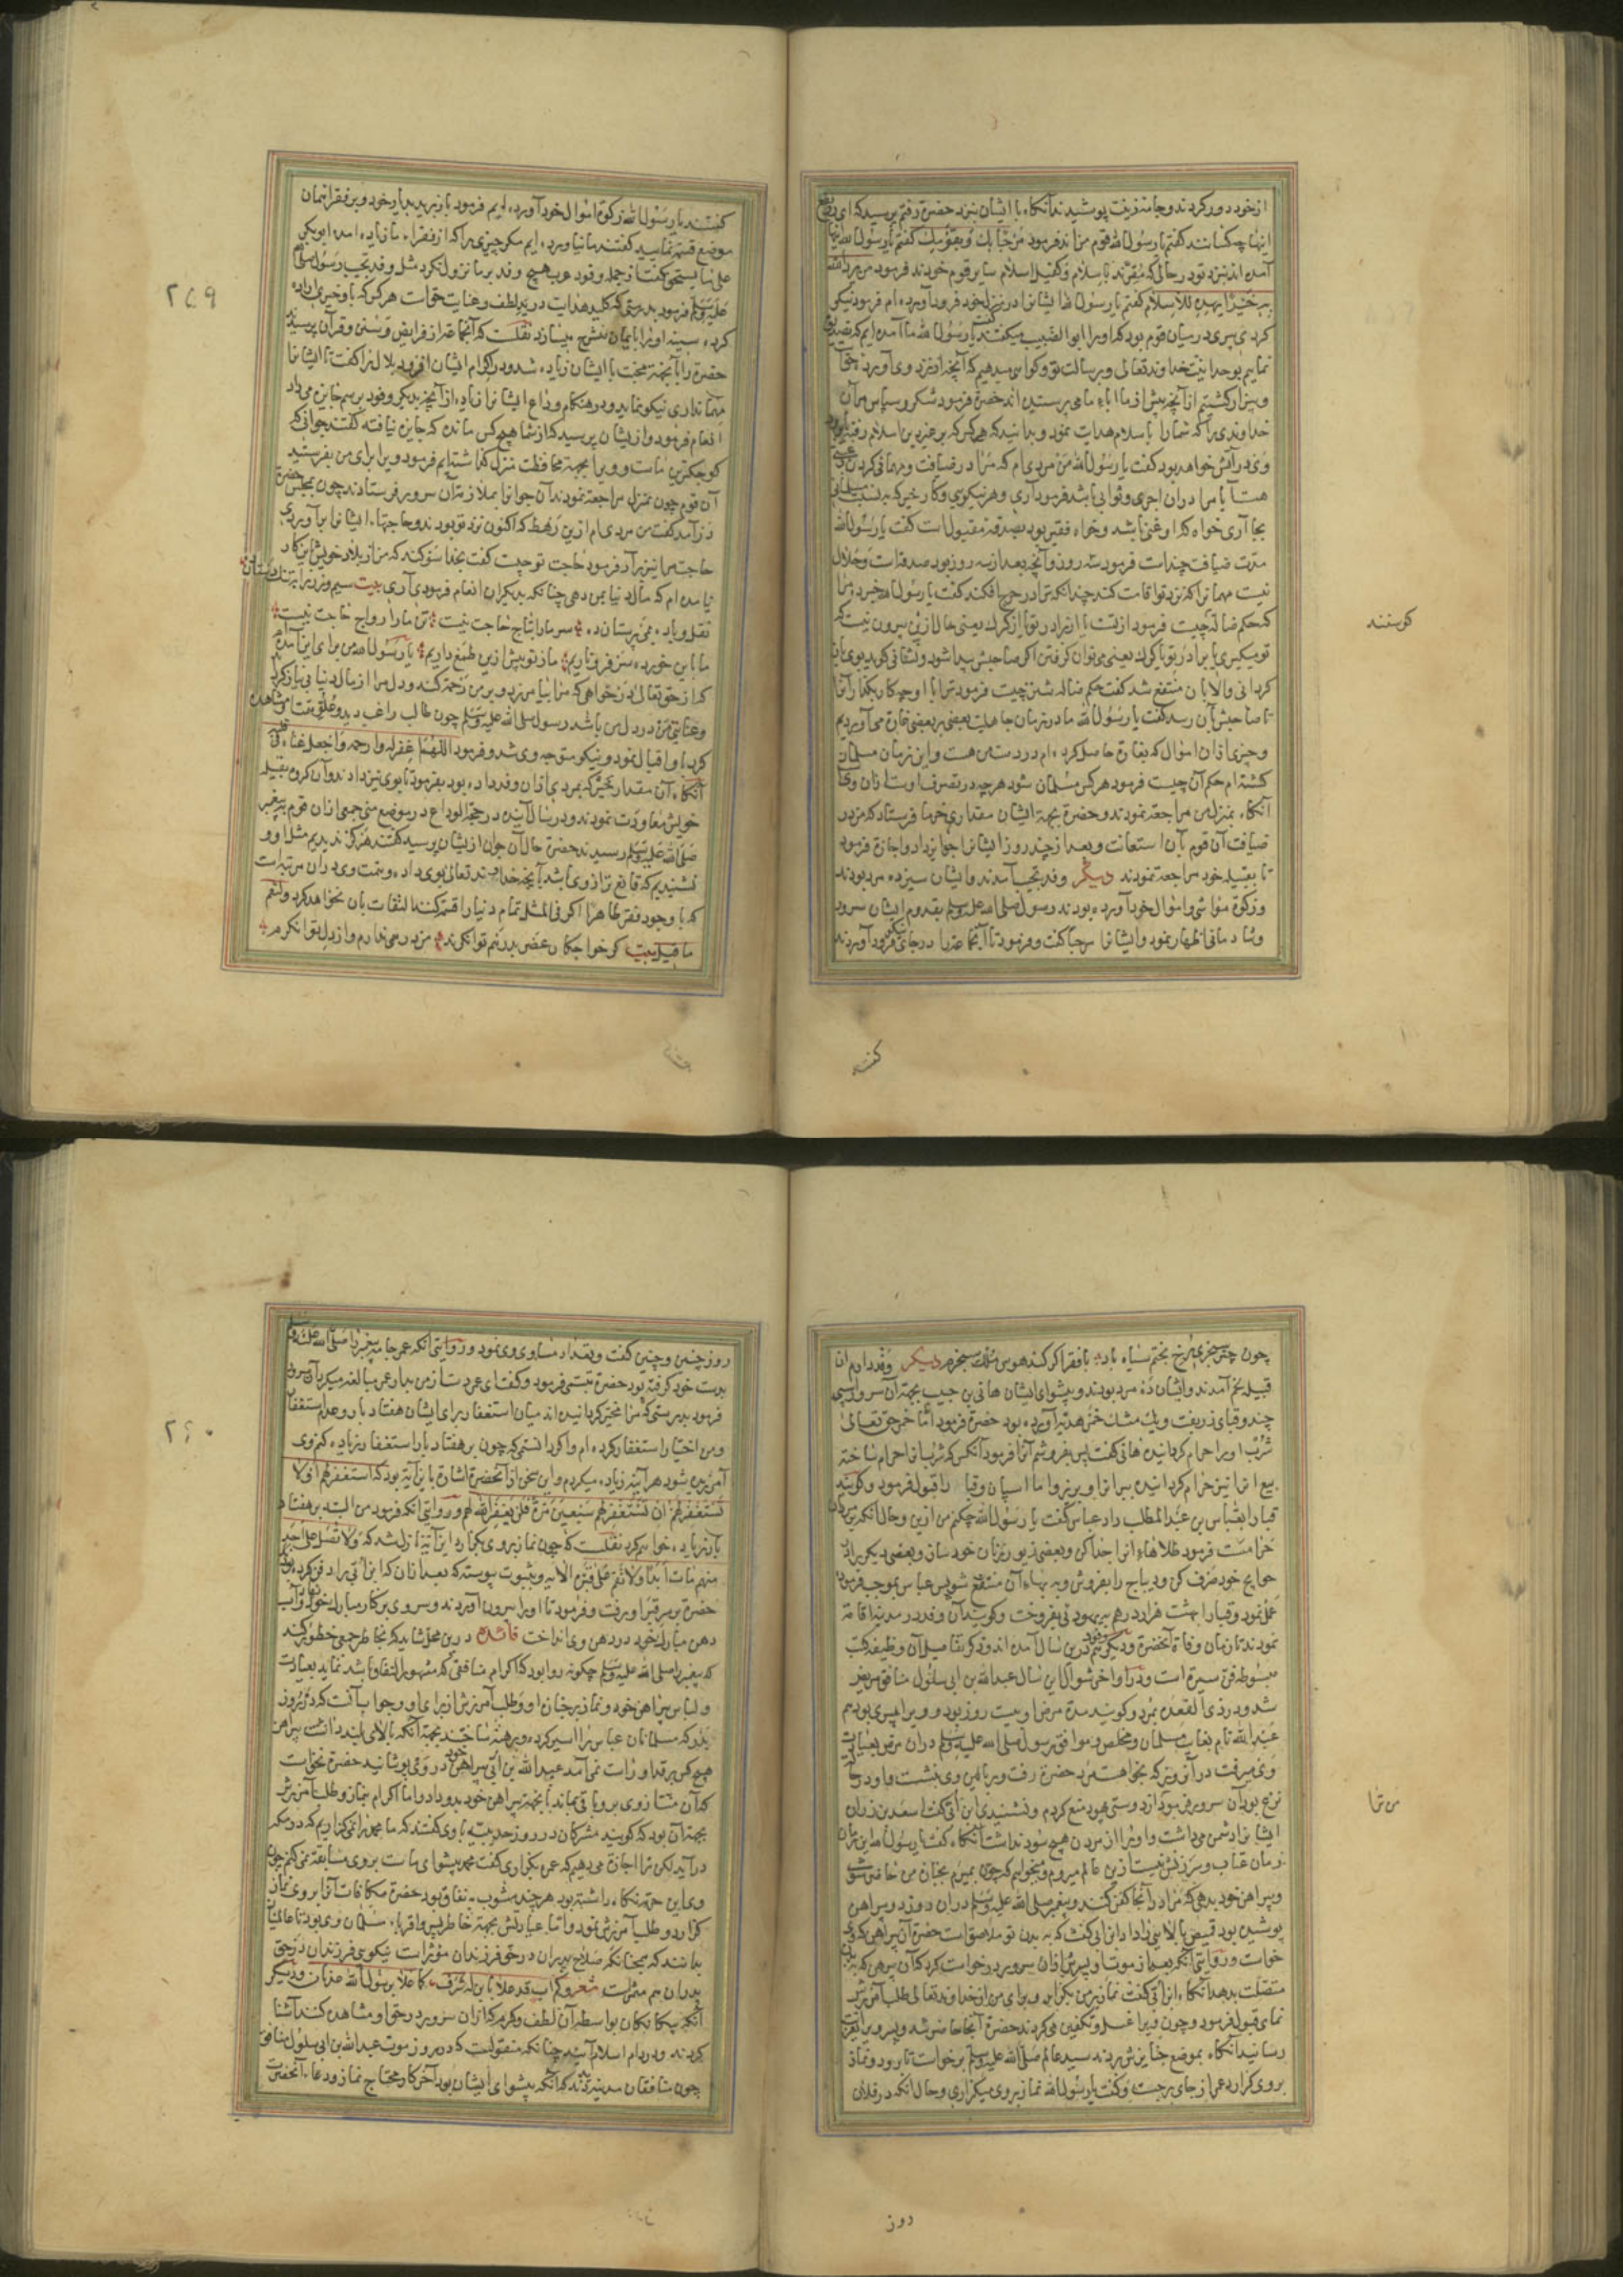 از خود دور کردند و جامه زینت پوشیدند آنکاه با ایشان بنزد حضرة رفتم پرسید که ای
اینها چه کسانند کفتم یا رسول الله قوم من اند فرمود مرحبا بك و بقومك کفتم یا رسول الله اینها
آمده اند بنزد تو در حالی که مقرند باسلام و کفیل اسلام سایر قوم خودند فرمود من یرد الله
به خیرا یهدیه للاسلام کفتم یا رسول الله ایشانرا در منزل خود فرود آورده ام فرمود نیکو
کردی پسری در میان قوم بود که او را ابو الضبیب میکفتند کفت یا رسول الله ما آمده ایم که تصدیق تو
نماییم بوحدانیت خداوند تعالی و برسالت تو و کواهی میدهیم که آنچه از نزد وی آورده حق است
و بیزار کشتیم از آنچه پیش از ما اباء ما می پرستیده اند حضرة فرمود شکر و سپاس مر آن
خداوندی را که شما را باسلام هدایت نمود و بدانید که هر کس که بر غیر دین اسلام رفته
وی در آتش خواهد بود کفت یا رسول الله من مردی ام که مرا در ضیافت و مهمانی کردن رغبتی
هست آیا مرا در ان اجری و ثوابی باشد فرمود آری و هر نیکویی و کار خیر که به نسبت مسلمانی
بجا آری خواه که او غنی باشد و خواه فقیر بود بصدقه مقبول است کفت یا رسول الله
مدت ضیافت چند است فرمود سه روز و آنچه بعد از سه روز بود صدقه است و حلال
نیست مهمانرا که نزد تو اقامت کند چندانکه ترا در حرج افکند کفت یا رسول الله خبر ده مرا
که حکم ضاله چیست فرمود از تست یا از برادر تو یا از کرك یعنی حال ازین بیرون نیست که
تو میکیری یا برادر تو یا کرك یعنی می توان کرفتن اکر صاحبش پیدا شود
کردانی والا بآن منتفع شد کفت حکم ضاله شتر چیست فرمود ترا با او چه کار بکذار آنرا
تا صاحبش بآن رسد کفت یا رسول الله ما در زمان جاهلیت بعضی بر بعضی غارة می آوردیم
و چیزی از ان اموال که بغارة حاصل کرده ام در دست من هست و این زمان مسلمان
کشته ام حکم آن چیست فرمود هر کس مسلمان شود هر چه در تصرف اوست از ان وی است
آنکاه بمنزل من مراجعه نمودند و حضرة بجهة ایشان مقداری خرما فرستاد که من در
ضیافت آن قوم بآن استعانت و بعد از چند روز ایشانرا جوایز داد و اجازة فرمود
تا بقبیله خود مراجعة نمودند دیکر وفد تجیب آمدند و ایشان سیزده مرد بودند
و زکوة مواشی و اموال خود آورده بودند رسول صلی الله علیه وسلم بقدوم ایشان سرور
و شادمانی اظهار نمود و ایشانرا مرحبا کفت و فرمود تا آنجماعة را در جای نیکو فرود آوردند
کوسفند
کفتند
۲۵۹
کفتند یا رسول الله زکوة اموال خود آورده ایم فرمود باز برید بدیار خود و بر فقراء همان
موضع قسمة نمایید کفتند ما نیاورده ایم مکر چیزی را که از فقراء ما زیاده آمده ابو بکر
علیه وسلم فرمود بدرستی که کلید هدایت در ید لطف و عنایت حق است هر کس که باو خیری اراده
کرده سینه او را بایمان منشرح میسازد نقلست که آنجماعة از فرایض و سنن و قرآن پرسیدند
حضرة را بآنجهة محبت با ایشان زیاده شد و در اکرام ایشان افزود بلال را کفت تا ایشانرا
مهمانداری نیکو نماید و در هنکام وداع ایشانرا زیاده از آنچه بدیکر وفود برسم جایزه میداد
انعام فرمود و از ایشان پرسید که از شما هیچ کس مانده که جایزه نیافته کفتند جوانی که
کوچکترین ماست و ویرا بجهة محافظت منزل کذاشته ایم فرمود ویرا برای من بفرستید
آن قوم چون بمنزل مراجعة نمودند آن جوانرا بملازمة آن سرور فرستادند چون بمجلس حضرة
در آمد کفت من مردی ام ازین رهط که اکنون نزد تو بودند و حاجتهاء ایشانرا بر آوردی
حاجت مرا نیز بر آر فرمود حاجت تو چیست کفت بخدا سوکند که من از بلاد خویش بآن کار
نیامده ام که مال دنیا بمن دهی چنانکه بدیکران انعام فرمودی آری بیت سیم و زر را به تنك دستان
نقل و باده بمی پرستان ده سر ما را بتاج حاجت نیست تن ما را رواج حاجت نیست
ما باین خورده سر فرو ناریم ما ز تو بیش ازین طمع داریم یا رسول الله من برای این آمدم
که از حق تعالی در خواهی که مرا بیامرزد و بر من رحمة کند و دل مرا از مال دنیا بی نیاز کرداند
و غنای من در دل من باشد رسول صلی الله علیه وسلم چون طالب راغب دید و علو همت او مشاهده
کرد باو اقبال نمود و نیکو متوجه وی شد و فرمود اللهم اغفر له وارحمه واجعل غناه فی قلبه
آنکاه آن مقدار بخشش که بمردی از ان وفد داده بود بفرمود تا بوی نیز دادند و آن کروه بقبیله
خویش معاودت نمودند و در سال آینده در حجة الوداع در موضع منی جمعی از ان قوم به پیغمبر
صلی الله علیه وسلم رسیدند حضرة حال آن جوان از ایشان پرسید کفتند هرکز ندیدیم مثل او و
نشنیدیم که قانع تر از وی باشد بآنچه خداوند تعالی بوی داده و همت وی در ان مرتبه است
که با وجود فقر ظاهرا اکر فی المثل تمام دنیا را قسمة کنند التفات بآن نخواهد کرد ولنعم
ما قیل بیت کر خواجکان عصر بدرهم توانکرند من درم ندارم و از دل توانکرم
چون چتر سنجری رخ بختم سیاه باد با فقر اکر کند هوس ملك سنجرم دیکر وفد داریم از ان
قبیله لخم آمدند و ایشان ده مرد بودند و پیشوای ایشان هانی بن حبیب بجهة آن سرور اسپی
چند و قبای زربفت و یك مشك خمر هدیه آورده بود حضرة فرمود اما خمر حق تعالی
شرب او را حرام کردانیده هانی کفت پس بفروشم آنرا فرمود آنکس که شرب آنرا حرام ساخته
بیع انرا نیز حرام کردانیده ببر انرا و بریز و اما اسپان و قبا را قبول فرمود و کویند
قبا را بعباس بن عبد المطلب داد عباس کفت یا رسول الله چکنم من ازین و حال آنکه بر مردان
حرام است فرمود طلاهاء انرا جدا کن و بعضی زیور زنان خود ساز و بعضی دیکر برای
حوایج خود صرف کن و دیباج را بفروش و به بهاء آن منتفع شو پس عباس بموجب فرموده
عمل نمود و قبا را بهشت هزار درهم به یهودی بفروخت و کویند آن وفد در مدینه اقامة
نمودند تا زمان وفاة آنحضرة و دیکر وفود هم درین سال آمده اند و ذکر تفاصیل آن وظیفه کتب
مبسوطه فن سیره است و در اواخر شوال این سال عبد الله بن ابی سلول منافق مریض
شد و در ذی القعده بمرد و کویند مدة مرض او بیست روز بود و ویرا پسری بود هم
عبد الله نام بغایت مسلمان و مخلص و موافق رسول صلی الله علیه وسلم در ان مرض بعیادت
وی میرفت در آنروز که بخواهست مرد حضرة رفت و بر بالین وی بنشست و او در حالت
نزع بود آن سرور فرمود ترا از دوستی یهود منع کردم و نشنیدی ابن ابی کفت اسعد بن زراره
ایشانرا دشمن می داشت و او را از مردن هیچ سود نداشت آنکاه کفت یا رسول الله این زمان
زمان عتاب و سرزنش نیست ازین عالم میروم و میخواهم که چون بمیرم بجنازه من حاضر شوی
و پیراهن خود بدهی که مرا در آنجا کفن کنند و پیغمبر صلی الله علیه وسلم در ان روز دو پیراهن
پوشیده بود قمیص بالایین را داد ابن ابی کفت که به بدن تو ملاصق است حضرة آن پیراهن که وی
خواست و روایتی آنکه بعد از موت او پسرش از ان سرور درخواست کرد که آن پیرهن که به بدن
متصلست بدهد آنکاه ابن ابی کفت نماز بر من بکزار و برای من از خداوند تعالی طلب آمرزش
نمای قبول فرمود و چون ویرا غسل و تکفین می کردند حضرة آنجا حاضر شد و پسر ویرا تعزیت
رسانید آنکاه بموضع جنایزش بردند سید عالم صلی الله علیه وسلم برخواست تا رود و نماز
بر وی کزارد عمر از جای برجست و کفت یا رسول الله نماز بر وی میکزاری و حال آنکه در فلان
من ترا
روز
۲۶۰
روز چنین و چنین کفت و تعداد مساوی وی نمود و روایتی آنکه عمر جامه پیغمبر را صلی الله علیه وسلم
بدست خود کرفته بود حضرة تبسمی فرمود و کفت ای عمر دست از من بدار عمر مبالغه میکرد آن سرور
فرمود بدرستی که مرا مخیر کردانیده اند میان استغفار برای ایشان هفتاد بار و عدم استغفار
و من اختیار استغفار کرده ام و اکر دانستمی که چون بر هفتاد بار استغفار زیاده کنم وی
آمرزیده شود هر آینه زیاده میکردم و این سخن از آنحضرة اشارة باین آیة بود که استغفر لهم او لا
تستغفر لهم ان تستغفر لهم سبعین مرة فلن یغفر الله لهم و روایتی آنکه فرمود من البته بر هفتاد
بار زیاده خواهم کرد نقلست که چون نماز بر وی بکزارد این آیة نازل شد که ولا تصل علی احد
منهم مات ابدا ولا تقم علی قبره الآیه و بثبوت پیوسته که بعد از ان که ابن ابی را دفن کرده بودند
حضرة بر سر قبر او رفت و فرمود تا او را بیرون آوردند و سر وی بر کنار مبارك خود نهاد و آب
دهن مبارك خود در دهن وی انداخت فائده درین محل شاید که بخاطر جمعی خطور کند
که پیغمبر را صلی الله علیه وسلم چکونه روا بود که اکرام منافقی که مشهور النفاق باشد نماید بعیادت
و لباس پیراهن خود و نماز بر جنازه او و طلب آمرزش از برای او و جواب آنست که در روز
بدر که مسلمانان عباس را اسیر کرده و برهنه ساختند بجهة آنکه بالای بلند داشت پیراهن
هیچ کس بر قد او راست نمی آمد عبد الله بن ابی پیراهن خود در وی پوشانید حضرة نخواست
که آن منت از وی بر وی باقی بماند بآنجهة پیراهن خود بدو داد و اما اکرام بنماز و طلب آمرزش
بجهة آن بود که کویند مشرکان در روز حدیبیه باوی کفتند که ما محمد را نمی کذاریم که در مکه
در آید لکن ترا اجازة می دهیم که عمره بکزاری کفت محمد پیشوای ماست بر وی مسابقة نمی کنم چون
وی این حرمة نکاه داشته بود هر چند مشوب به نفاق بود حضرة مکافات آنرا بر وی نماز
کزارد و طلب آمرزش نمود و اما عیادتش بجهة خاطر پسر و اقرباء مسلمان وی بود تا عالمیان
بدانند که همچنانکه صلاح پدران در حق فرزندان مؤثر است نیکویی فرزندان در حق
پدران هم مثمر است شعر وکم اب قد علا بابن له شرف کما علا برسول الله عدنان و دیکر
آنکه بیکانکان بواسطه آن لطف و کرم که از ان سرور در حق او مشاهده کنند آشنا
کردند و در دام اسلام آیند چنانکه منقولست که در روز موت عبد الله بن ابی سلول منافق
چون منافقان مدینه دیدند که آنکه پیشوای ایشان بود آخر کار محتاج نماز و دعاء آنحضرت